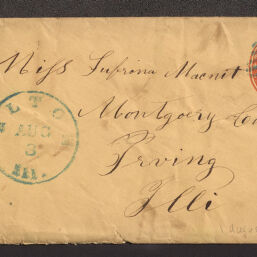 Miss Sufrina Macnit
Montgoery Co
Irving
Illi
LTO
AUG
3
Ill.